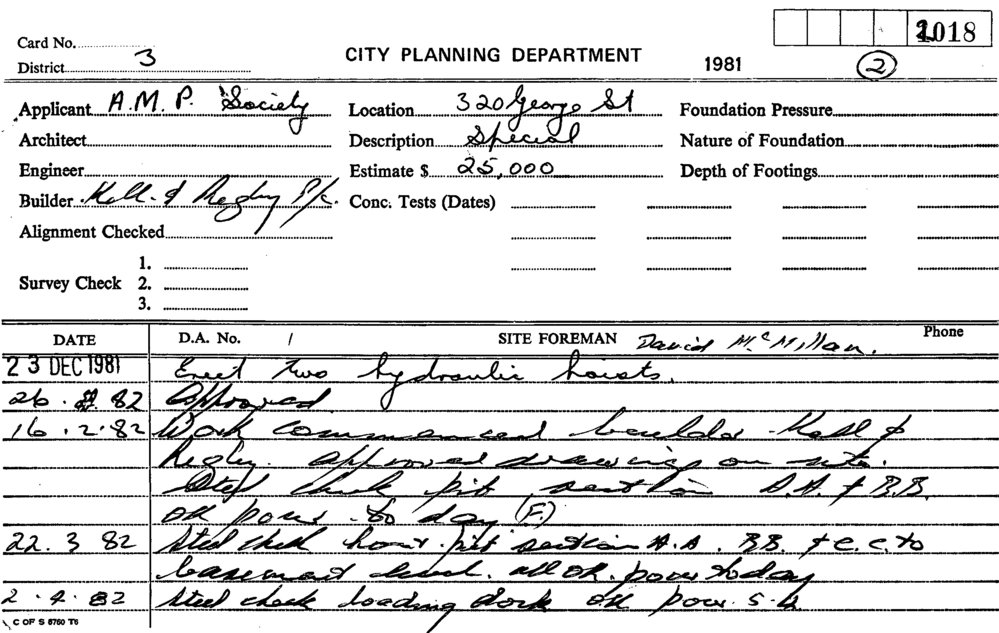 1018
Card No.
District 3
CITY PLANNING DEPARTMENT
1981
2
Applicant A.M.P. Society
Location 320 George St
Foundation Pressure
Architect
Description Special
Nature of Foundation
Engineer
Estimate $ 25,000
Depth of Footings
Builder Kell & Rigby P/L.
Conc. Tests (Dates)
Alignment Checked
1.
Survey Check 2.
3.
DATE
D.A. No.
SITE FOREMAN David McMillan.
Phone
23 DEC 1981 Erect two hydraulic hoists.
26. 82 Approved
16.2.82 Work commenced builder Kell &
Rigby. approved drawings on site.
Steel check pit section A.A. & B.B.
OK pour to day (F.)
22.3 82 Steel check hoist pit section A.A. BB. & C.C. to
basement level. all OK. pour today
2.4.82 Steel check loading dock OK pour 5-4
C OF S 8760 T6